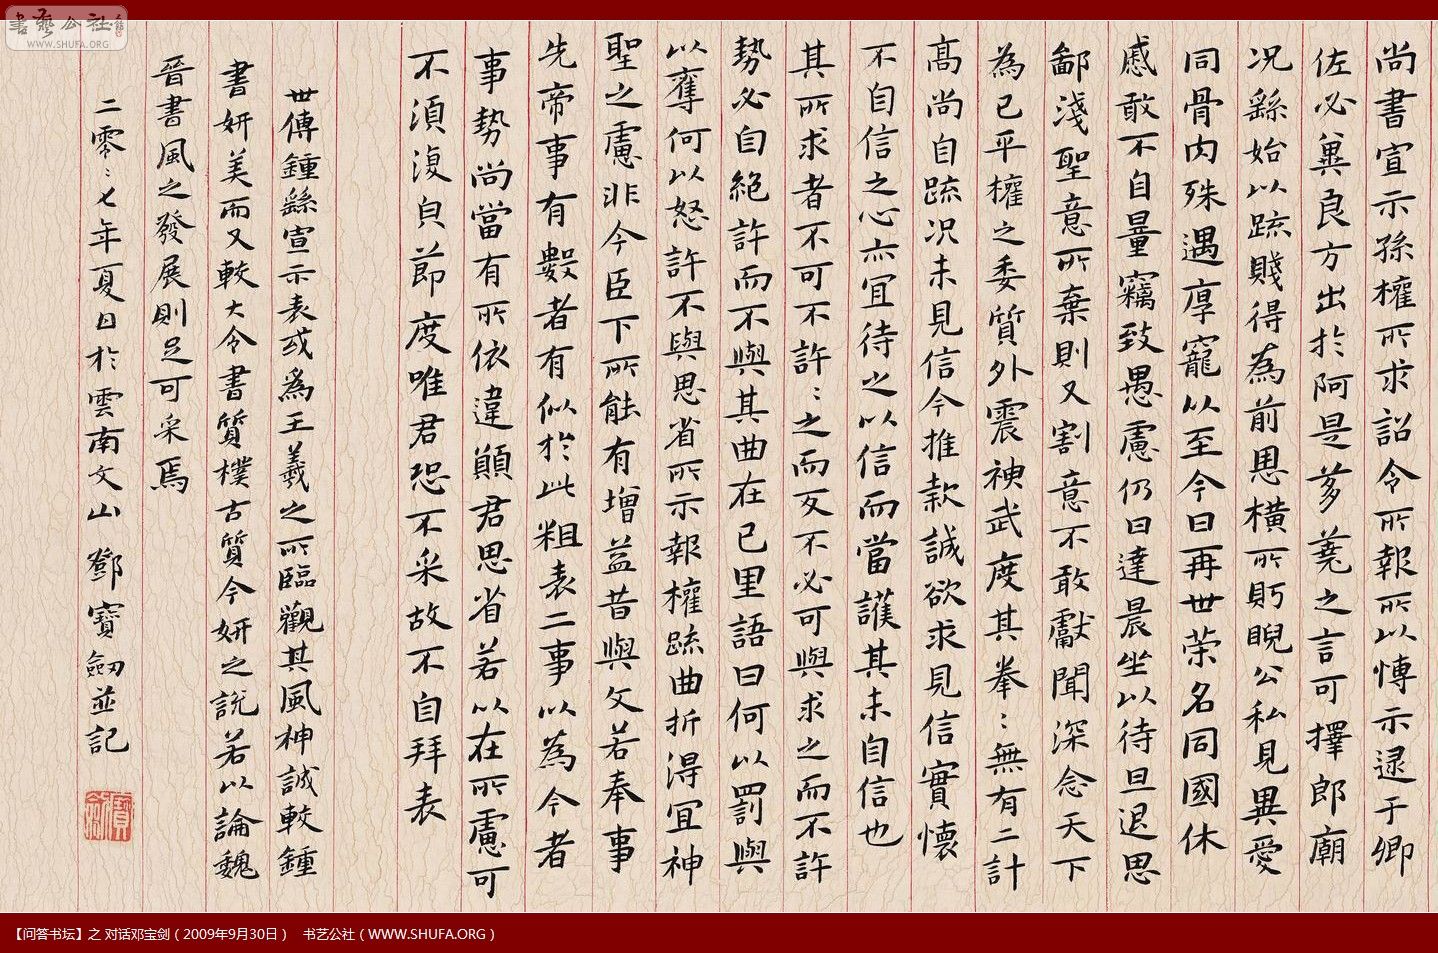 書藝公社
WWW.SHUFA.ORG
尚書宣示孫權所求詔令所報所以博示逮于卿
佐必冀良方出於阿是芻蕘之言可擇郎廟
况繇始以疏賤得為前恩橫所盱睨公私見異愛
同骨肉殊遇厚寵以至今日再世荣名同國休
慼敢不自量竊致愚慮仍日達晨坐以待旦退思
鄙淺聖意所棄則又割意不敢獻聞深念天下
為已平權之委質外震神武度其拳〻無有二計
高尚自疏况未見信今推款誠欲求見信實懷
不自信之心亦宜待之以信而當護其未自信也
其所求者不可不許〻之而反不必可與求之而不許
勢必自絕許而不與其曲在已里語曰何以罰與
以奪何以怒許不與思省所示報權疏曲折得宜神
聖之慮非今臣下所能有增益昔與文若奉事
先帝事有數者有似於此粗表二事以為今者
事勢尚當有所依違顛君思省若以在所慮可
不須復皃節度唯君恐不采故不自拜表
世傳鍾繇宣示表或為王羲之所臨觀其風神誠較鍾
書妍美而又較大令書質樸古質今妍之說若以論魏
晉書風之發展則足可采焉
二零〻七年夏日於雲南文山 鄧寶劍並記
寶劍
【问答书坛】之 对话邓宝剑（2009年9月30日） 书艺公社（WWW.SHUFA.ORG）